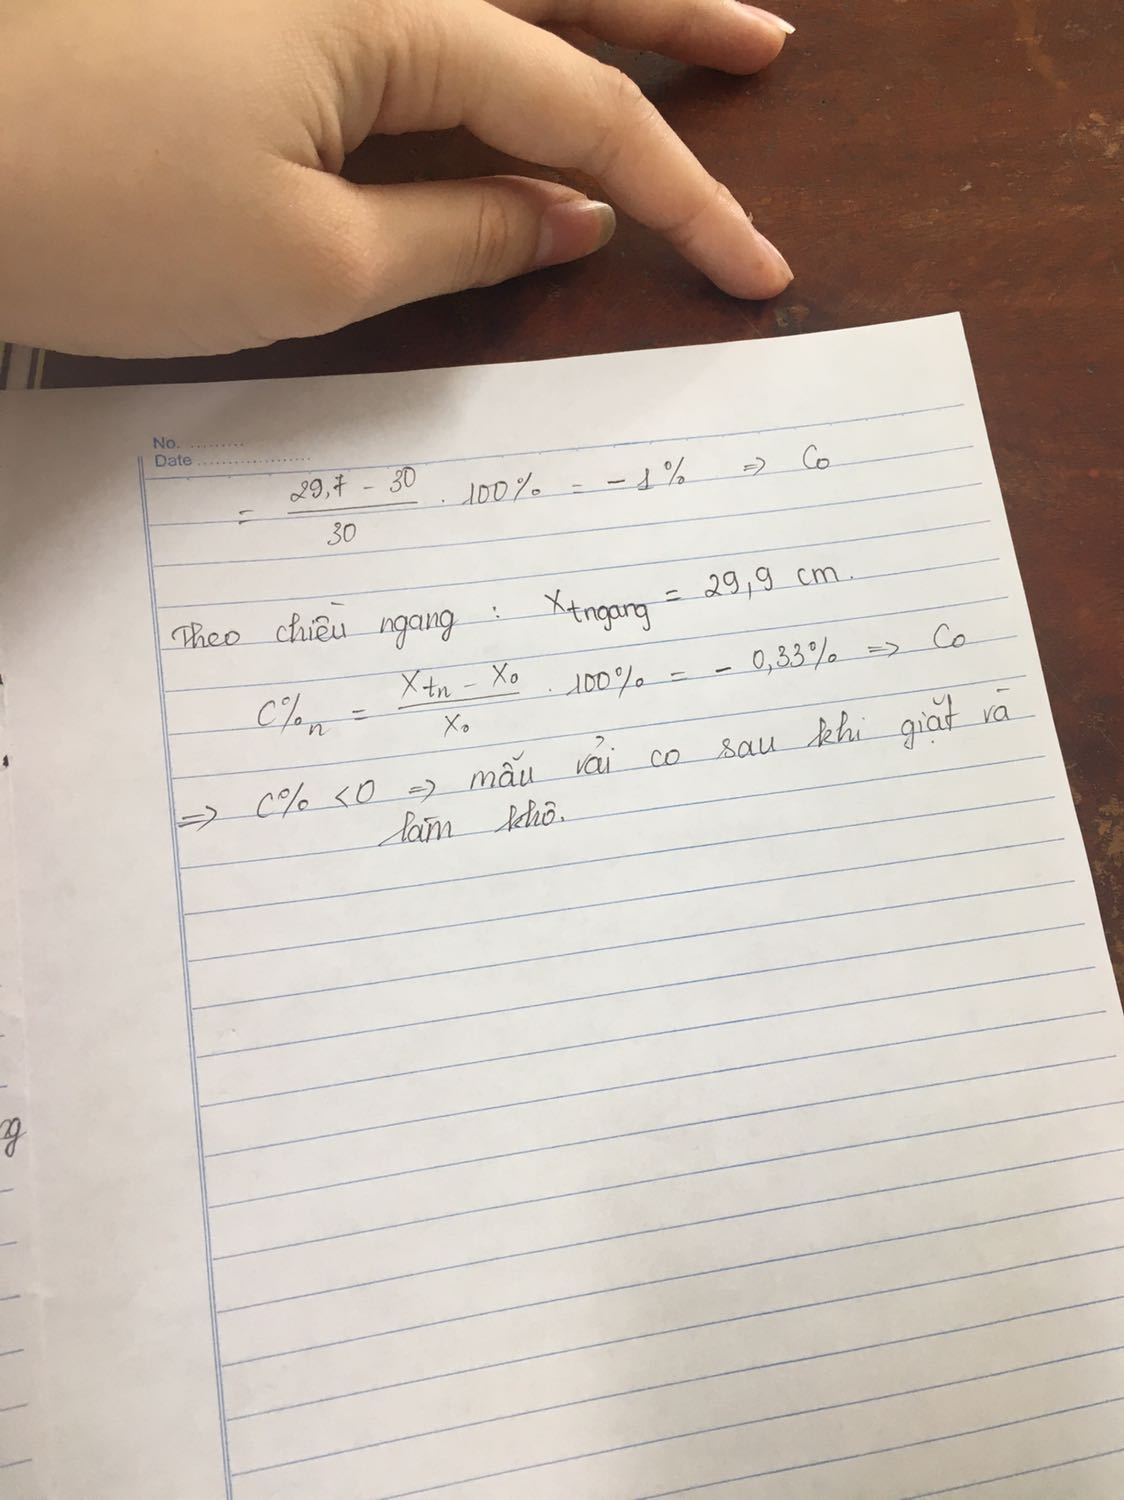 No. .........
Date ...................
= \frac{29,7 - 30}{30} . 100% = - 1% => Co
Theo chiều ngang : X_{tngang} = 29,9 cm.
C%_n = \frac{X_{tn} - X_0}{X_0} . 100% = - 0,33% => Co
=> C% < 0 => mẫu vải co sau khi giặt và
làm khô.
ng